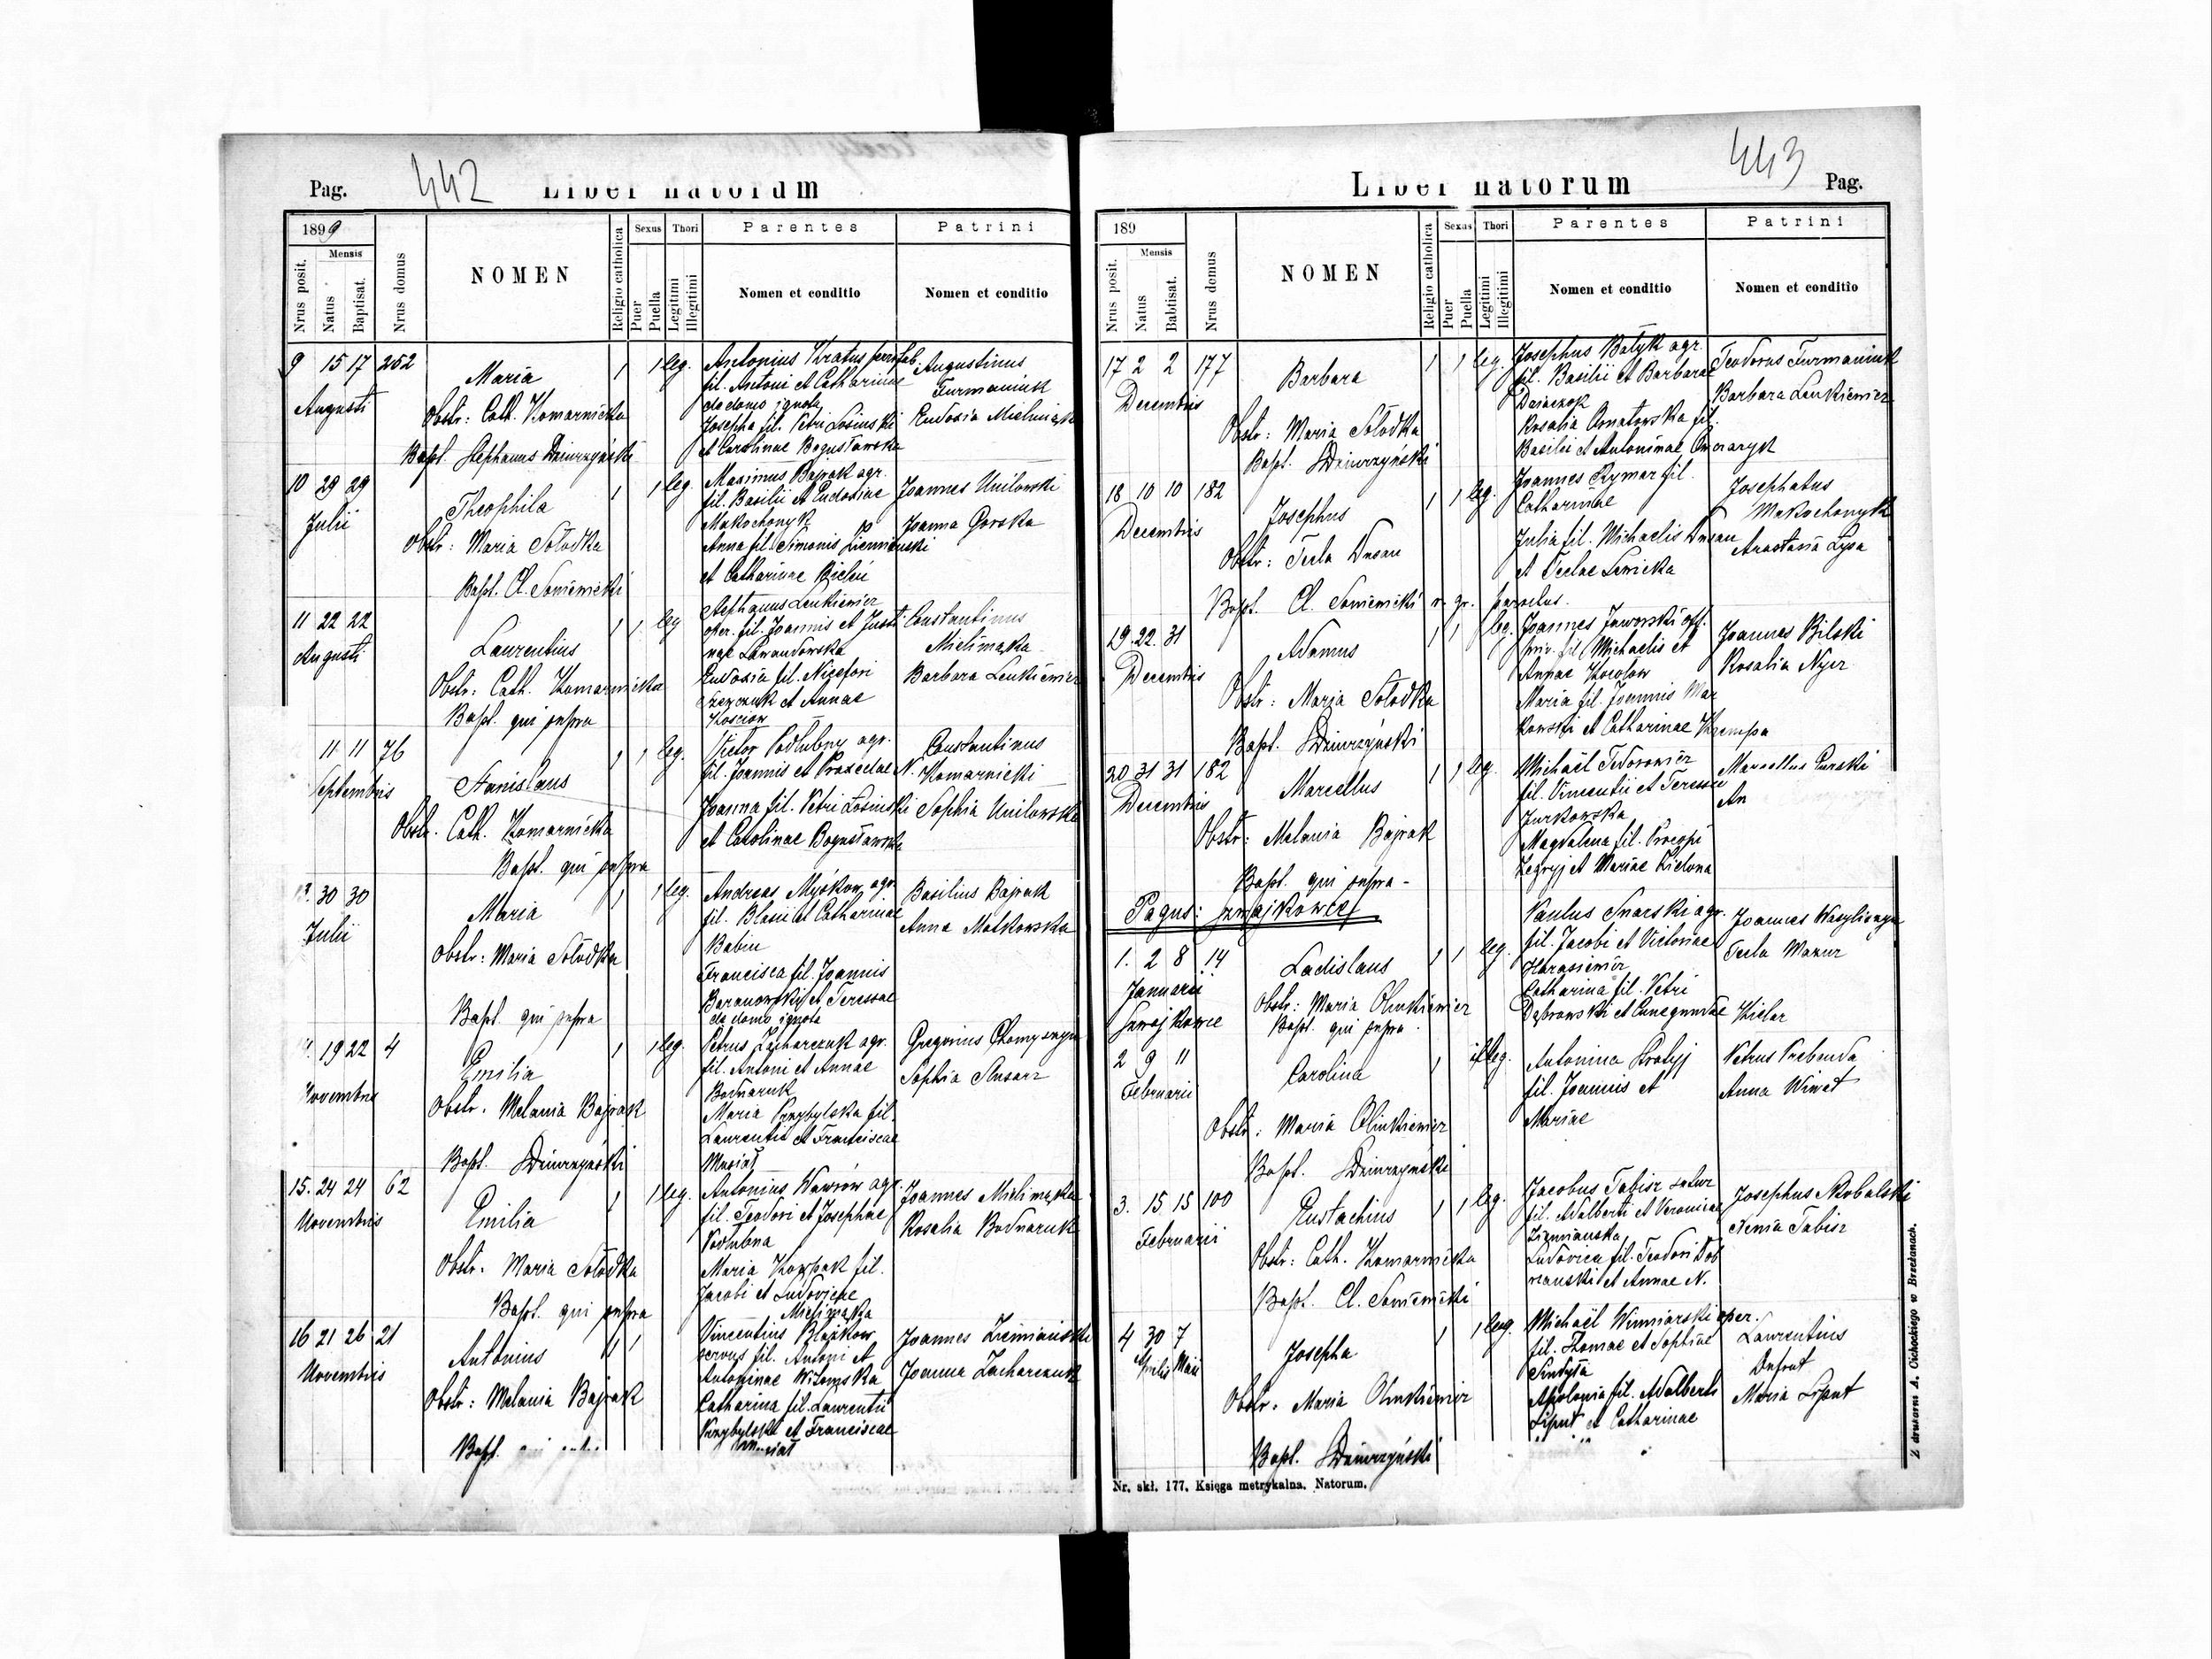 Pag. 442 Liber natorum
1899
Mensis
Nrus posit.
Natus
Baptisat.
Nrus domus
NOMEN
Religio catholica
Sexus
Puer
Puella
Thori
Legitimi
Illegitimi
Parentes
Nomen et conditio
Patrini
Nomen et conditio
9 15 17 252
Augusti
Maria
Obstr: Cath. Komarnicka
Bapt. Stephanus Dziurzyński
1 1 leg.
Antonius Kratus
fil. Antoni et Catharinae
de domo ignota
Josepha fil. Petri Łosinski
et Carolinae Bogusławska
Augustinus
Furmaniuk
Eudoxia Mielimąka
10 29 29
Julii
Theophila
Obstr: Maria Sołodka
Bapt. Cl. Soniewicki
1 1 leg.
Maximus Bajrak agr.
fil. Basilii et Eudoxiae
Makochonyk
Anna fil. Simonis Ziemianski
et Catharinae Bieleń
Joannes Unilowski
Joanna Gorska
11 22 22
Augusti
Laurentius
Obstr: Cath. Komarnicka
Bapt. qui supra
1 1 leg
Stephanus Leukiewicz
oper. fil. Joannis et Justi
nae Lewandowska
Eudoxia fil. Nicefori
Szewczuk et Annae
Kosciow
Constantinus
Mielimąka
Barbara Leukiewicz
11 11 76
Septembris
Stanislaus
Obstr. Cath. Komarnicka
Bapt. qui supra
1 1 leg.
Victor Podlubny agr.
fil. Joannis et Praxedae N.
Joanna fil. Petri Łosinski
et Carolinae Bogusławska
Constantinus
Komarnicki
Sophia Unilowska
13. 30 30
Julii
Maria
Obstr: Maria Sołodka
Bapt. qui supra
1 1 leg.
Andreas Myśkow agr.
fil. Blasii et Catharinae
Babin
Francisca fil. Joannis
Baranowski et Teressae
de domo ignota
Basilius Bajrak
Anna Małkowska
19 22 4
Novembris
Emilia
Obstr. Melania Bajrak
Bapt. Dziurzyński
1 1 leg.
Petrus Zacharczuk agr.
fil. Antoni et Annae
Bodnaruk
Maria Przybylska fil.
Laurentii et Franciscae
Musiał
Gregorius Chomyszyn
Sophia Slusarz
15. 24 24 62
Novembris
Emilia
Obstr. Maria Sołodka
Bapt. qui supra
1 1 leg.
Antonius Wawrów agr.
fil. Teodori et Josephae
Podlubna
Maria Korpak fil.
Jacobi et Ludovicae
Mielimąka
Joannes Mielimąka
Rosalia Bodnaruk
16 21 26 21
Novembris
Antonius
Obstr: Melania Bajrak
Bapt. qui supra
1 1
Vincentius Blajkow
servus fil. Antoni et
Antoninae Witomska
Catharina fil. Laurentii
Przybylski et Franciscae
Musiał
Joannes Ziemianski
Joanna Zacharczuk
Liber natorum 443 Pag.
189
Mensis
Nrus posit.
Natus
Babtisat.
Nrus domus
NOMEN
Religio catholica
Sexus
Puer
Puella
Thori
Legitimi
Illegitimi
Parentes
Nomen et conditio
Patrini
Nomen et conditio
17 2 2 177
Decembris
Barbara
Obstr: Maria Sołodka
Bapt. Dziurzyński
1 1 leg.
Josephus Batyk agr.
fil. Basilii et Barbarae
Dziaczok
Rosalia Ornatowska fil.
Basilii et Antoninae
Teodorus Furmaniuk
Barbara Leukiewicz
18 10 10 182
Decembris
Josephus
Obstr: Tecla Dusan
Bapt. Cl. Soniewicki r. gr. parochus.
1 1 leg.
Joannes Rymar fil.
Catharinae
Julia fil. Michaelis Dusan
et Teclae Lewicka
Josephatus
Makochonyk
Anastasia Lysa
19. 22. 31
Decembris
Adamus
Obstr: Maria Sołodka
Bapt. Dziurzyński
1 1 leg.
Joannes Jaworski off.
priv. fil. Michaelis et
Annae Kocolow
Maria fil. Joannis Mar
kowski et Catharinae Krempa
Joannes Bilski
Rosalia Nyer
20 31 31 182
Decembris
Marcellus
Obstr: Melania Bajrak
Bapt. qui supra -
1 1 leg.
Michaël Fedorowicz
fil. Vincentii et Teressae
Jurkowska
Magdalena fil. Procopi
Zegryj et Mariae Zielona
Marcellus Gurski
An
Pagus: Szwajkowce
1. 2 8 14
Januarii
Szwajkowce
Ladislaus
Obstr: Maria Olinkiewicz
Bapt. qui supra.
1 1 leg.
Paulus Snarski agr.
fil. Jacobi et Victoriae
Harasiewicz
Catharina fil. Petri
Dąbrowski et Cunegundae Kielar
Joannes Wasyliszyn
Tecla Mazur
2 9 11
Februarii
Carolina
Obstr: Maria Olinkiewicz
Bapt. Dziurzyński
1 illeg.
Antonina Krotyj
fil. Joannis et
Mariae
Petrus Prebenda
Anna Wiwat
3. 15 15 100
Februarii
Eustachius
Obstr: Cath. Komarnicka
Bapt. Cl. Soniewicki
1 1 leg.
Jacobus Tabisz sutor
fil. Adalberti et Veronicae
Ziemianska
Ludovica fil. Teodori Dob
rzanski et Annae N.
Josephus Skobalski
Xenia Tabisz
4 30 7
Aprilis Maii
Josepha
Obstr. Maria Olinkiewicz
Bapt. Dziurzyński
1 1 leg.
Michaël Winniarski oper.
fil. Thomae et Sophiae
Apolonia fil. Adalberti
Liput et Catharinae
Laurentius
Dufrat
Maria Liput
Nr. skł. 177. Księga metrykalna. Natorum.
Z drukarni A. Cichockiego w Brzeżanach.